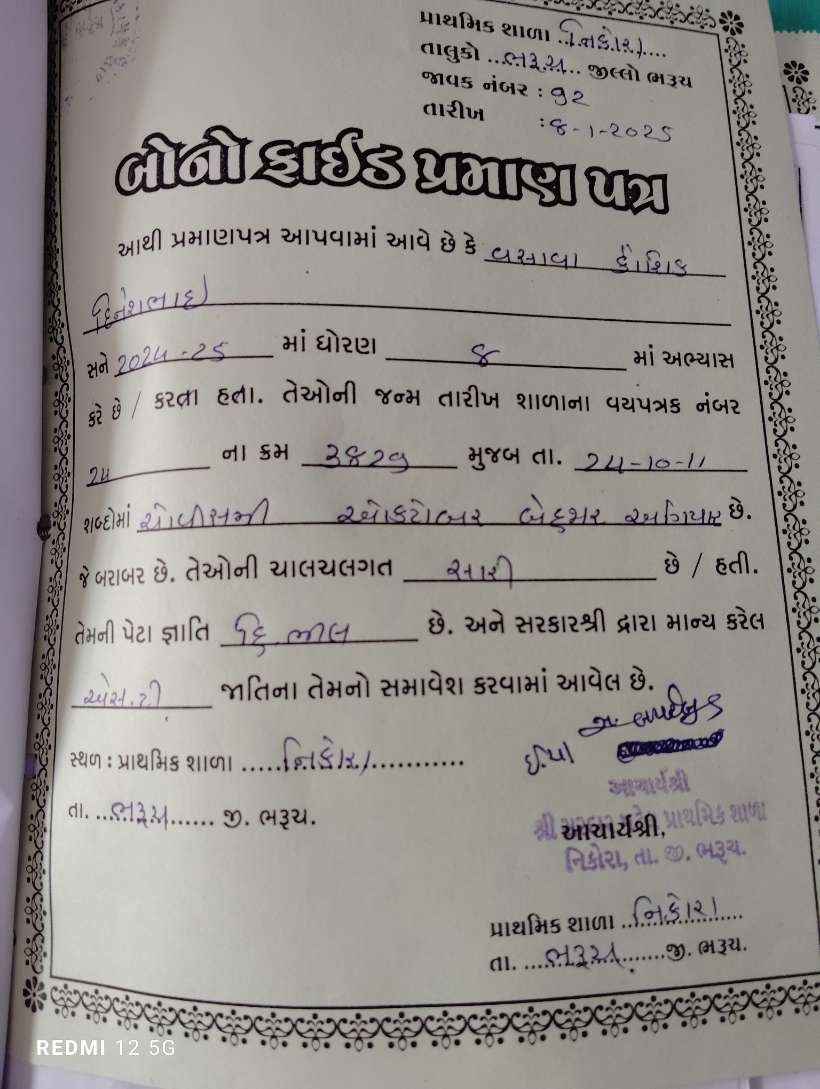 પ્રાથમિક શાળા ..નિકોરા....
તાલુકો ...ભરૂચ... જીલ્લો ભરૂચ
જાવક નંબર : ૭૨
તારીખ : ૪-૧-૨૦૨૫
બોનો ફાઈડ પ્રમાણ પત્ર
આથી પ્રમાણપત્ર આપવામાં આવે છે કે વસાવા કૌશિક
દિનેશભાઈ
સને ૨૦૨૪-૨૫ માં ધોરણ ૮ માં અભ્યાસ
કરે છે / કરતા હતા. તેઓની જન્મ તારીખ શાળાના વયપત્રક નંબર
૨૪ ના ક્રમ ૩૪૨૭ મુજબ તા. ૨૪-૧૦-૧૧
શબ્દોમાં ચોવીસમી ઓકટોબર બેહજાર અગિયાર છે.
જે બરાબર છે. તેઓની ચાલચલગત સારી છે / હતી.
તેમની પેટા જ્ઞાતિ હિ ભીલ છે. અને સરકારશ્રી દ્વારા માન્ય કરેલ
એસ.ટી જાતિના તેમનો સમાવેશ કરવામાં આવેલ છે.
સ્થળ : પ્રાથમિક શાળા .....નિકોરા...........
તા. ...ભરૂચ...... જી. ભરૂચ.
આચાર્યશ્રી
શ્રી પ્રાથમિક શાળા
આચાર્યશ્રી,
નિકોરા, તા. જી. ભરૂચ.
પ્રાથમિક શાળા ..નિકોરા....
તા. ....ભરૂચ.......જી. ભરૂચ.
REDMI 12 5G